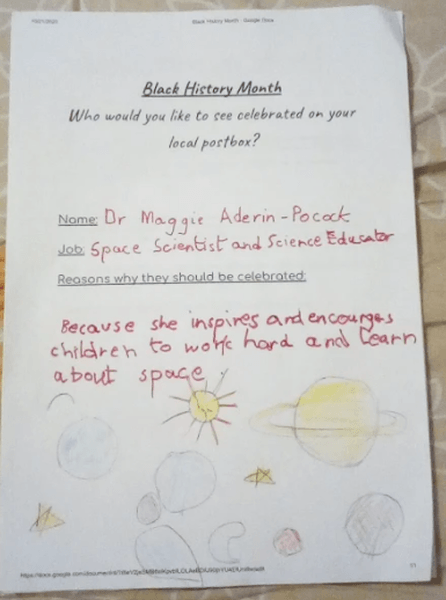 Black History Month - Google Docs
Black History Month
Who would you like to see celebrated on your
local postbox?
Name: Dr Maggie Aderin-Pocock
Job: Space Scientist and Science Educator
Reasons why they should be celebrated:
Because she inspires and encourges
children to work hard and learn
about space.
1/1